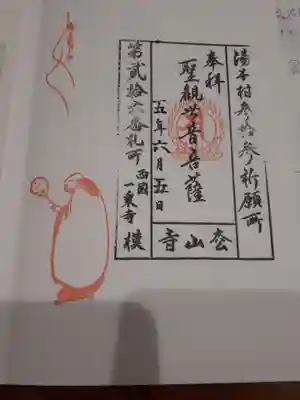 湯本村参拾参祈願所
奉拝
聖觀世音菩薩
五年六月五日
第貳拾六番札所
西国
一乗寺
模
枩山寺